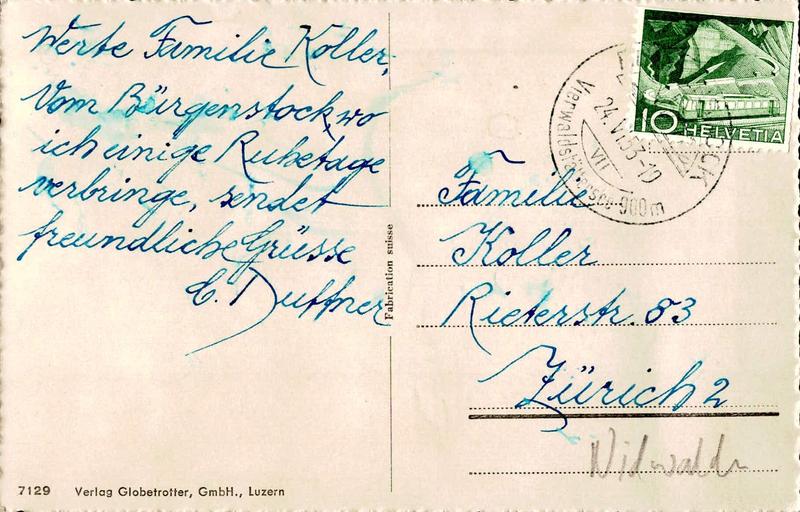 Werte Familie Koller,
Vom Bürgenstock, wo
ich einige Ruhetage
verbringe, sendet
freundliche Grüsse
C. Duffner
Fabrication suisse
10 HELVETIA
24.VI.53-19
VII
Vierwaldstättersee-900m
Familie
Koller
Rieterstr. 83
Zürich 2
Nidwalden
7129 Verlag Globetrotter, GmbH., Luzern